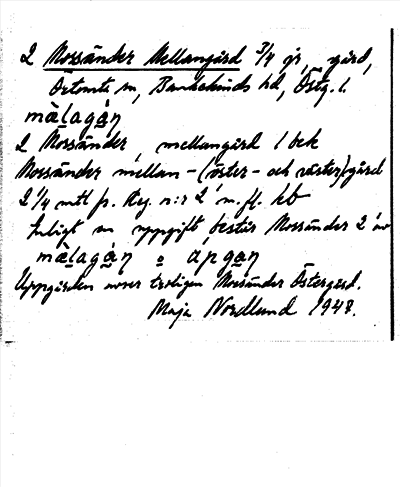 2 Mossänder Mellangård 3/4 gr, gård,
Örtomta sn, Bankekinds hd, Östg. l.
mæ̀lagáṇ
2 Mossänder, mellangård 1 bek
Mossänder mellan-(öster- och väster)gård
2 1/4 mtl fr. Reg. n:r 2 m. fl. kb
Enligt m uppgift består Mossänder 2 av
mæ̀lagáṇ o åpgaṇ
Uppgården avser troligen Mossänder Östergård.
Maja Nordlund 1948.